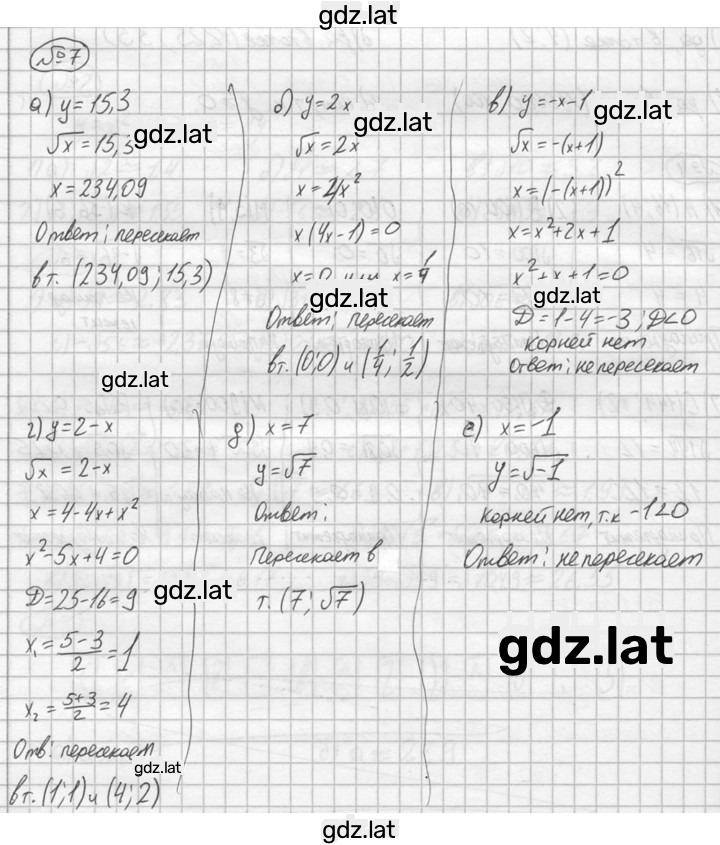 gdz.lat
№7
а) y=15,3
√x=15,3
gdz.lat
x=234,09
Ответ: пересекает
в т. (234,09; 15,3)
gdz.lat
б) y=2x
gdz.lat
√x=2x
x=4x²
x(4x-1)=0
x=0 или x=1/4
gdz.lat
Ответ: пересекает
в т. (0;0) и (1/4; 1/2)
в) y=-x-1
gdz.lat
√x=-(x+1)
x=(-(x+1))²
x=x²+2x+1
x²+x+1=0
gdz.lat
D=1-4=-3; D<0
Корней нет
Ответ: не пересекает
г) y=2-x
√x=2-x
x=4-4x+x²
x²-5x+4=0
D=25-16=9
gdz.lat
x₁=(5-3)/2=1
x₂=(5+3)/2=4
Отв: пересекает
gdz.lat
в т. (1;1) и (4;2)
д) x=7
y=√7
Ответ:
Пересекает в
т. (7; √7)
е) x=-1
y=√-1
Корней нет, т.к -1<0
Ответ: не пересекает
gdz.lat
gdz.lat